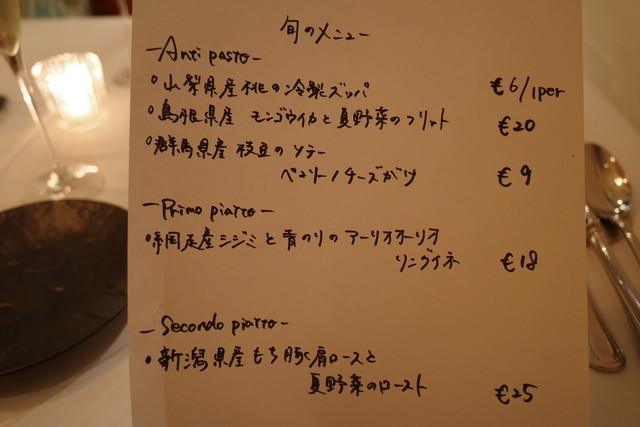 旬のメニュー
-Anti pasto-
・山梨県産桃の冷製ズッパ €6/1per
・島根県産 モンゴウイカと夏野菜のフリット €20
・群馬県産 枝豆のソテー
ペコリーノチーズがけ €9
-Primo piatto-
シジミと青のりのアーリオオーリオ
リングイネ €18
-Secondo piatto-
・新潟県産もち豚肩ロースと
夏野菜のロースト €25